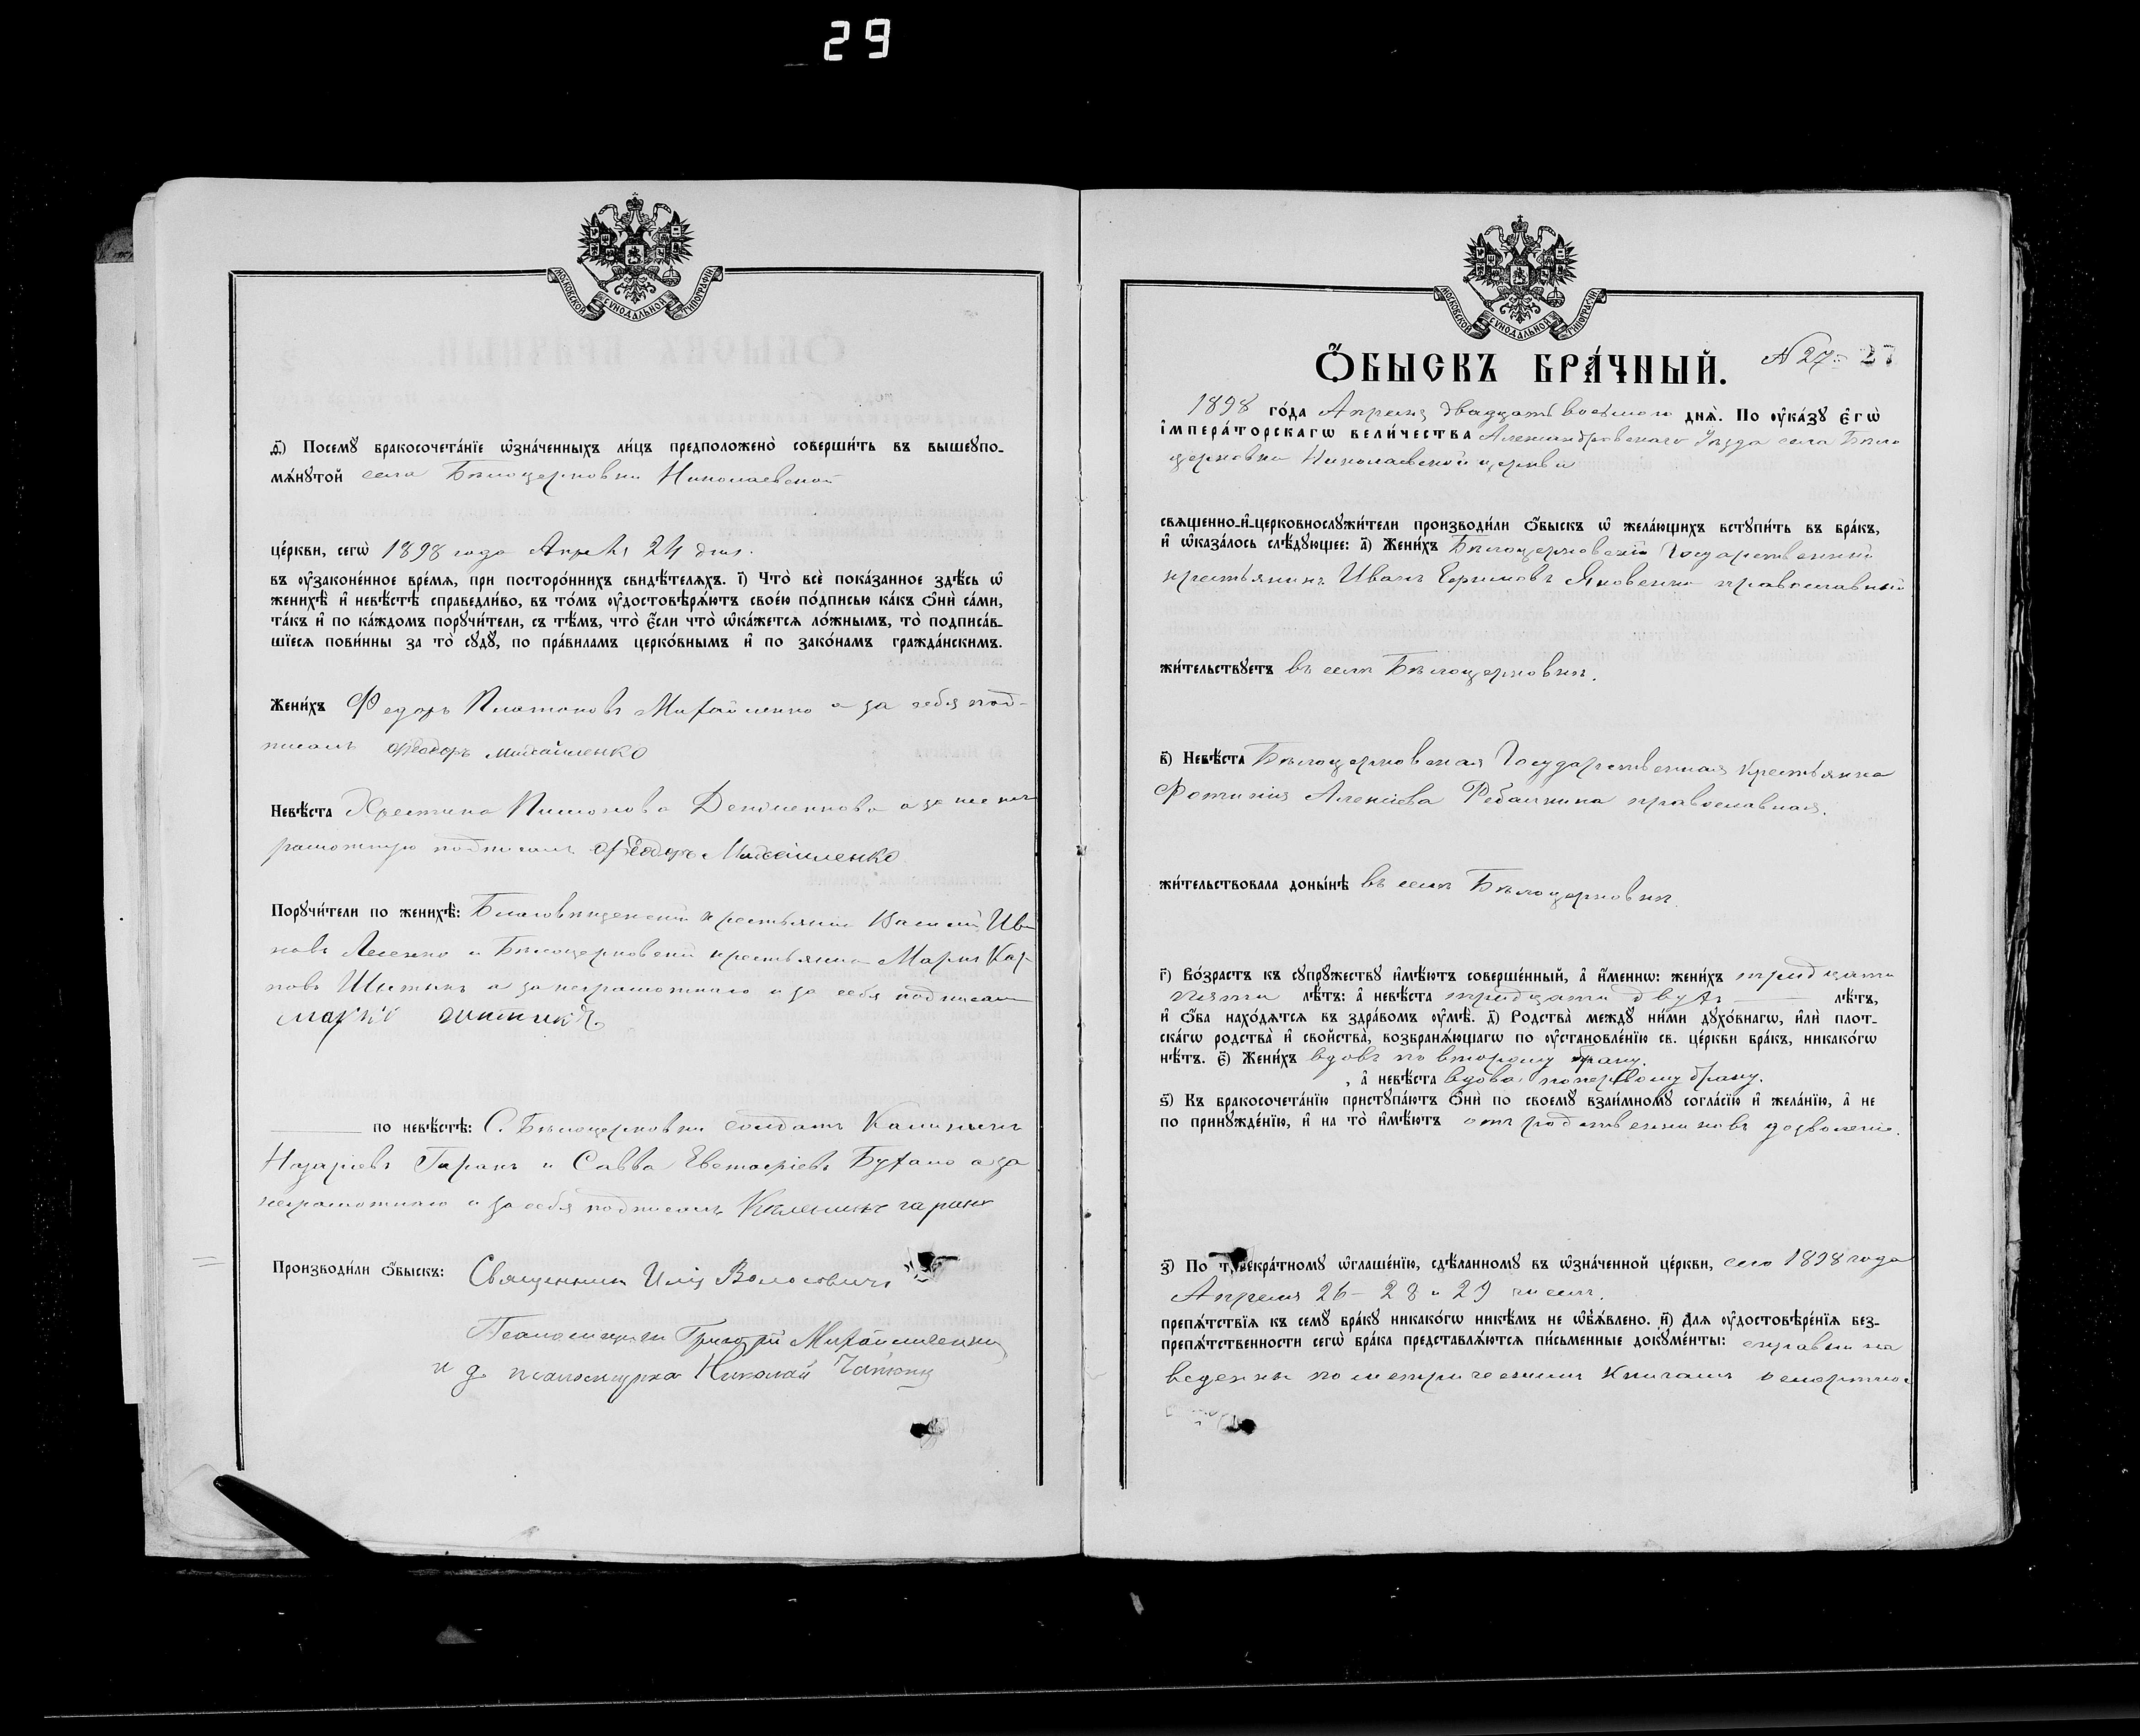 29
МОСКОВСКОЙ СѴНОДАЛЬНОЙ ТИПОГРАФІИ
ѳ҃) Посемꙋ бракосочета́нїе ѡ҆зна́ченныхъ ли́цъ предположено̀ соверши́ть въ вышеꙋпо-
мѧ́нꙋтой села Бѣлоцерковки Николаевской
це́ркви, сегѡ̀ 1898 года Апрѣля 24 дня.
въ ᲂу҆законе́нное вре́мѧ, при посторо́ннихъ свидѣ́телѧхъ. і҃) Что̀ всѐ пока́занное здѣ́сь ѡ҆
женихѣ̀ и҆ невѣ́стѣ справедли́во, въ то́мъ ᲂу҆достовѣрѧ́ютъ свое́ю по́дписью ка́къ ѻ҆нѝ са́ми,
та́къ и҆ по ка́ждомъ порꙋчи́тели, съ тѣ́мъ, что̀ є҆́сли что̀ ѡ҆ка́жетсѧ ло́жнымъ, то̀ подписа́в-
шїесѧ пови́нны за то̀ сꙋдꙋ̀, по пра́виламъ церко́внымъ и҆ по зако́намъ гражда́нскимъ.
Жени́хъ Федоръ Платоновъ Михайленко а за себя под-
писалъ Феодоръ Михайленко
Невѣ́ста Христина Пимонова а за нее нег
рамотную подписалъ Феодоръ Михайленко
Порꙋчи́тели по женихѣ̀: Благовѣщенскій крестьянинъ Василій Ива
новъ Лесенко и Бѣлоцерковскій крестьянинъ Маркъ Кар
повъ Шитикъ а за неграмотнаго и за себя подписалъ
Марко Шитикъ.
по невѣ́стѣ: С. Бѣлоцерковки солдатъ Калиникъ
Назаріевъ Гаранъ и Савва Евстафіевъ Бухало а за
неграмотнаго и за себя подписалъ Калиникъ гаранъ
Производи́ли ѻ҆́быскъ: Священникъ Илія Волосовичъ
Псаломщикъ Григорій Михайличенко
и д. псаломщика Николай
МОСКОВСКОЙ СѴНОДАЛЬНОЙ ТИПОГРАФІИ
Ѻ҆́БЫСКЪ БРА́ЧНЫЙ. N 27 27
1898 го́да Апреля двадцать восьмого днѧ̀. По ᲂу҆ка́зꙋ є҆гѡ̀
і҆мпера́торскагѡ вели́чества Александровскаго Уѣзда села Бѣло
церковки Николаевской церкви
свѧщенно-и҆-церковнослꙋжи́тели производи́ли ѻ҆́быскъ ѡ҆ жела́ющихъ встꙋпи́ть въ бра́къ,
и҆ ѡ҆каза́лось слѣ́дꙋющее: а҃) Жени́хъ Бѣлоцерковскій Государственный
крестьянинъ Иванъ Ефимовъ Яковенко православный
жи́тельствꙋетъ въ селѣ Бѣлоцерковкѣ.
в҃) Невѣ́ста Бѣлоцерковская Государственная крестьянка
Фотинія Алексіева православная.
жи́тельствовала доны́нѣ въ селѣ Бѣлоцерковкѣ
г҃) Во́зрастъ къ сꙋпрꙋ́жествꙋ и҆мѣ́ютъ соверше́нный, а҆ и҆́меннѡ: жени́хъ тридцати
пяти лѣ́тъ: а҆ невѣ́ста тридцати двухъ лѣ́тъ,
и҆ ѻ҆́ба нахо́дѧтсѧ въ здра́вомъ ᲂу҆мѣ̀. д҃) Родства̀ междꙋ̀ ни́ми дꙋхо́внагѡ, и҆лѝ плот-
ска́гѡ родства̀ и҆ сво́йства̀, возбранѧ́ющагѡ по ᲂу҆становле́нїю св. це́ркви бра́къ, никако́гѡ
нѣ́тъ. є҃) Жени́хъ вдовъ по второму браку.
, а҆ невѣ́ста вдова по первому браку.
ѕ҃) Къ бракосочета́нїю пристꙋпа́ютъ ѻ҆нѝ по своемꙋ̀ взаи́мномꙋ согла́сїю и҆ жела́нїю, а҆ не
по принꙋжде́нїю, и҆ на то̀ и҆мѣ́ютъ отъ родственниковъ дозволеніе.
з҃) По троекра́тномꙋ ѡ҆глаше́нїю, сдѣ́ланномꙋ въ ѡ҆зна́ченной це́ркви, сего 1898 года
Апреля 26 - 28 и 29 числъ.
препѧ́тствїѧ къ семꙋ̀ бра́кꙋ никако́гѡ никѣ́мъ не ѡ҆б̾ѧ́влено. и҃) Длѧ ᲂу҆достовѣре́нїѧ без-
препѧ́тственности сегѡ̀ бра́ка представлѧ́ютсѧ пи́сьменные докꙋме́нты: справки на
ведены по метрическимъ книгамъ